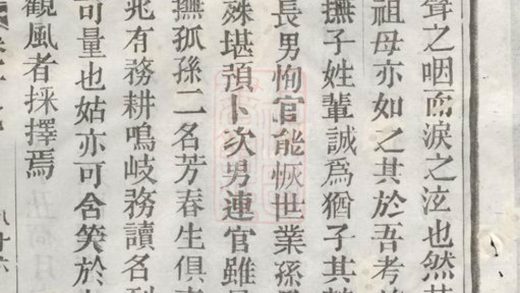 聲之咽而淚之泣也然
祖母亦如之其於吾考
撫子姓輩誠爲猶子其
長男恂官能恢世業孫
殊堪預卜次男連官雖
撫孤孫二名芳春生俱
兆有務耕鳴岐務讀名列
可量也姑亦可含笑於
觀風者採擇焉